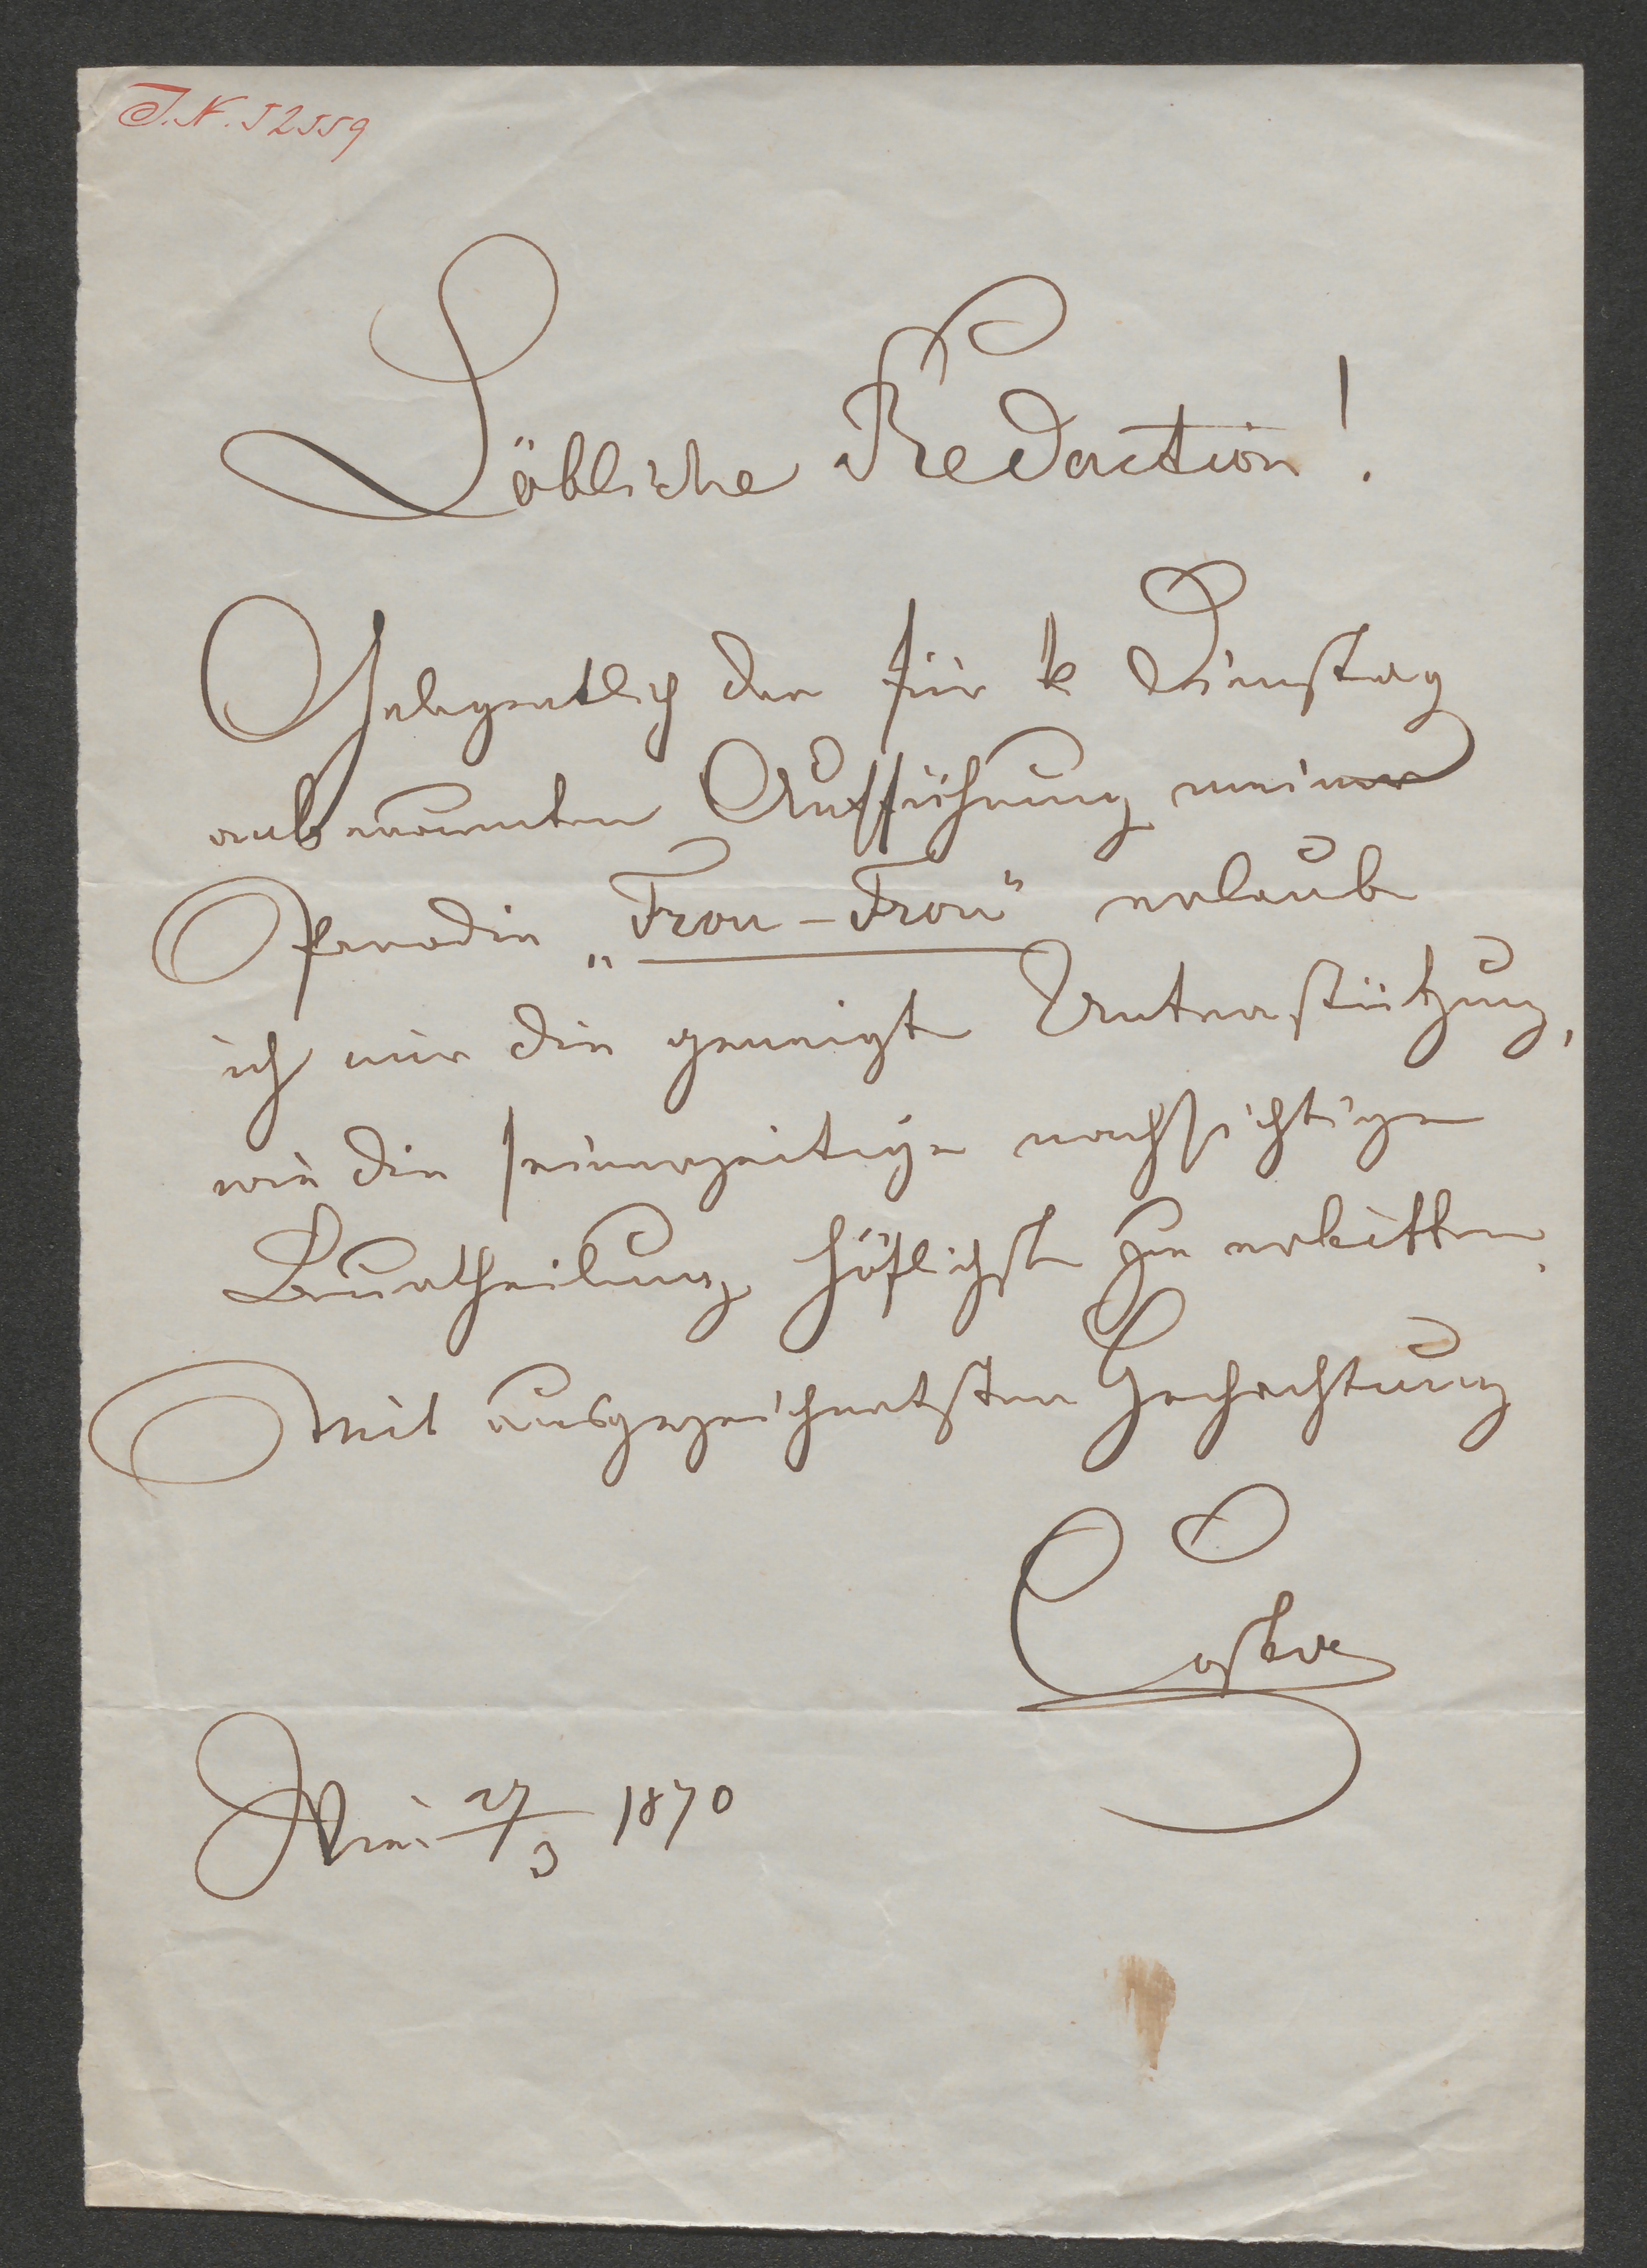 J.N. 52559
Löbliche Redaction!
Gelegentlich der für k Dienstag
anberaumten Aufführung meiner
Parodie „Frou-Frou" erlaube
ich mir die geneigte Unterstützung,
wie die seinerzeitige nachsichtige
Beurtheilung höflichst zu erbitten.
Mit ausgezeichnetster Hochachtung
Costa
Wien 27/3 1870